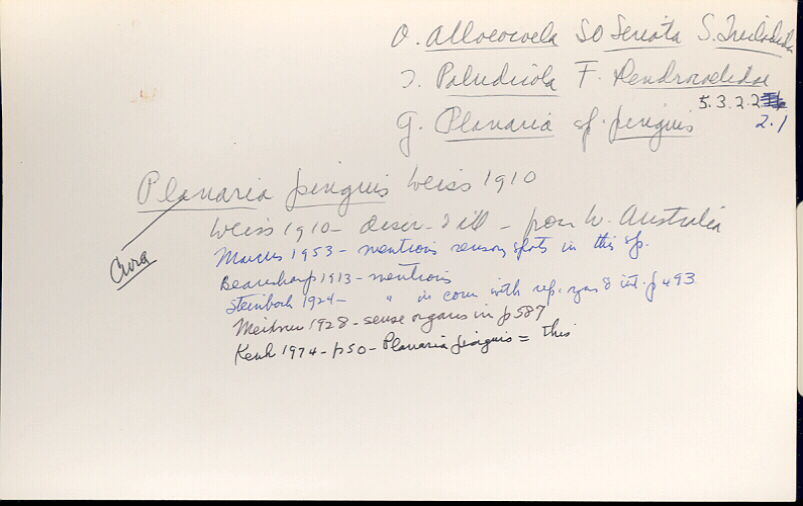 O. Alloeocoela SO Seriata S. Tricladida
T. Paludicola F. Dendrocoelidae
5.3.2.2
2.1
G. Planaria sp. pinguis
Planaria pinguis Weiss 1910
Weiss 1910 - descr. & ill - from W. Australia
Cura
Marcus 1953 - mentions sensory spots in this sp.
Beauchamp 1913 - mentions
Steinböck 1924 - " in conn with rep. organs & int. p 493
Meixner 1928 - sense organs in p 587
Kenk 1974 - p50 - Planaria pinguis = this